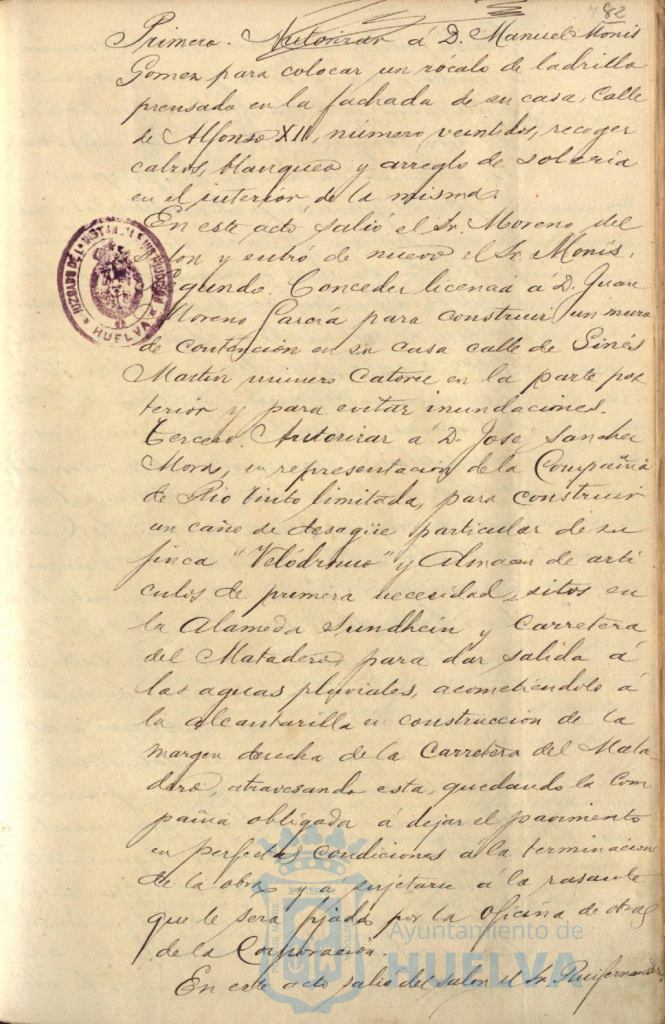 82
Primero. Autorizar á D. Manuel Monis
Gomez para colocar un zócalo de ladrillo
prensado en la fachada de su casa, Calle
de Alfonso XII, número veintidos, recoger
calzos, blanqueo y arreglo de solería
en el interior de la misma.
En este actó salió el Sr. Moreno del
salon y entró de nuevo el Sr. Monis.
Segundo. Conceder licencia á D. Juan
Moreno García para construir un muro
de contención en su casa calle de Ginés
Martín número Catorce en la parte pos
terior y para evitar inundaciones.
Tercero. Autorizar á D. José Sanchez
Mora, en representación de la Compañía
de Rio Tinto limitada, para construir
un caño de desagüe particular de su
finca "Velódromo" y Almacen de artí
culos de primera necesidad, sitos en
la Alameda Sundhein y Carretera
del Matadero, para dar salida á
las aguas pluviales, acometiéndolo á
la alcantarilla en construccion de la
margen derecha de la Carretera del Mata-
dero, atravesando esta, quedando la Com
pañia obligada á dejar el pavimento
en perfectas condiciones a la terminacion
de la obra y a sujetarse á la rasante
que le será fijada por la oficina de obras
de la Corporación.
En este acto salio del salon el Sr.
HUELVA
Ayuntamiento de
HUELVA